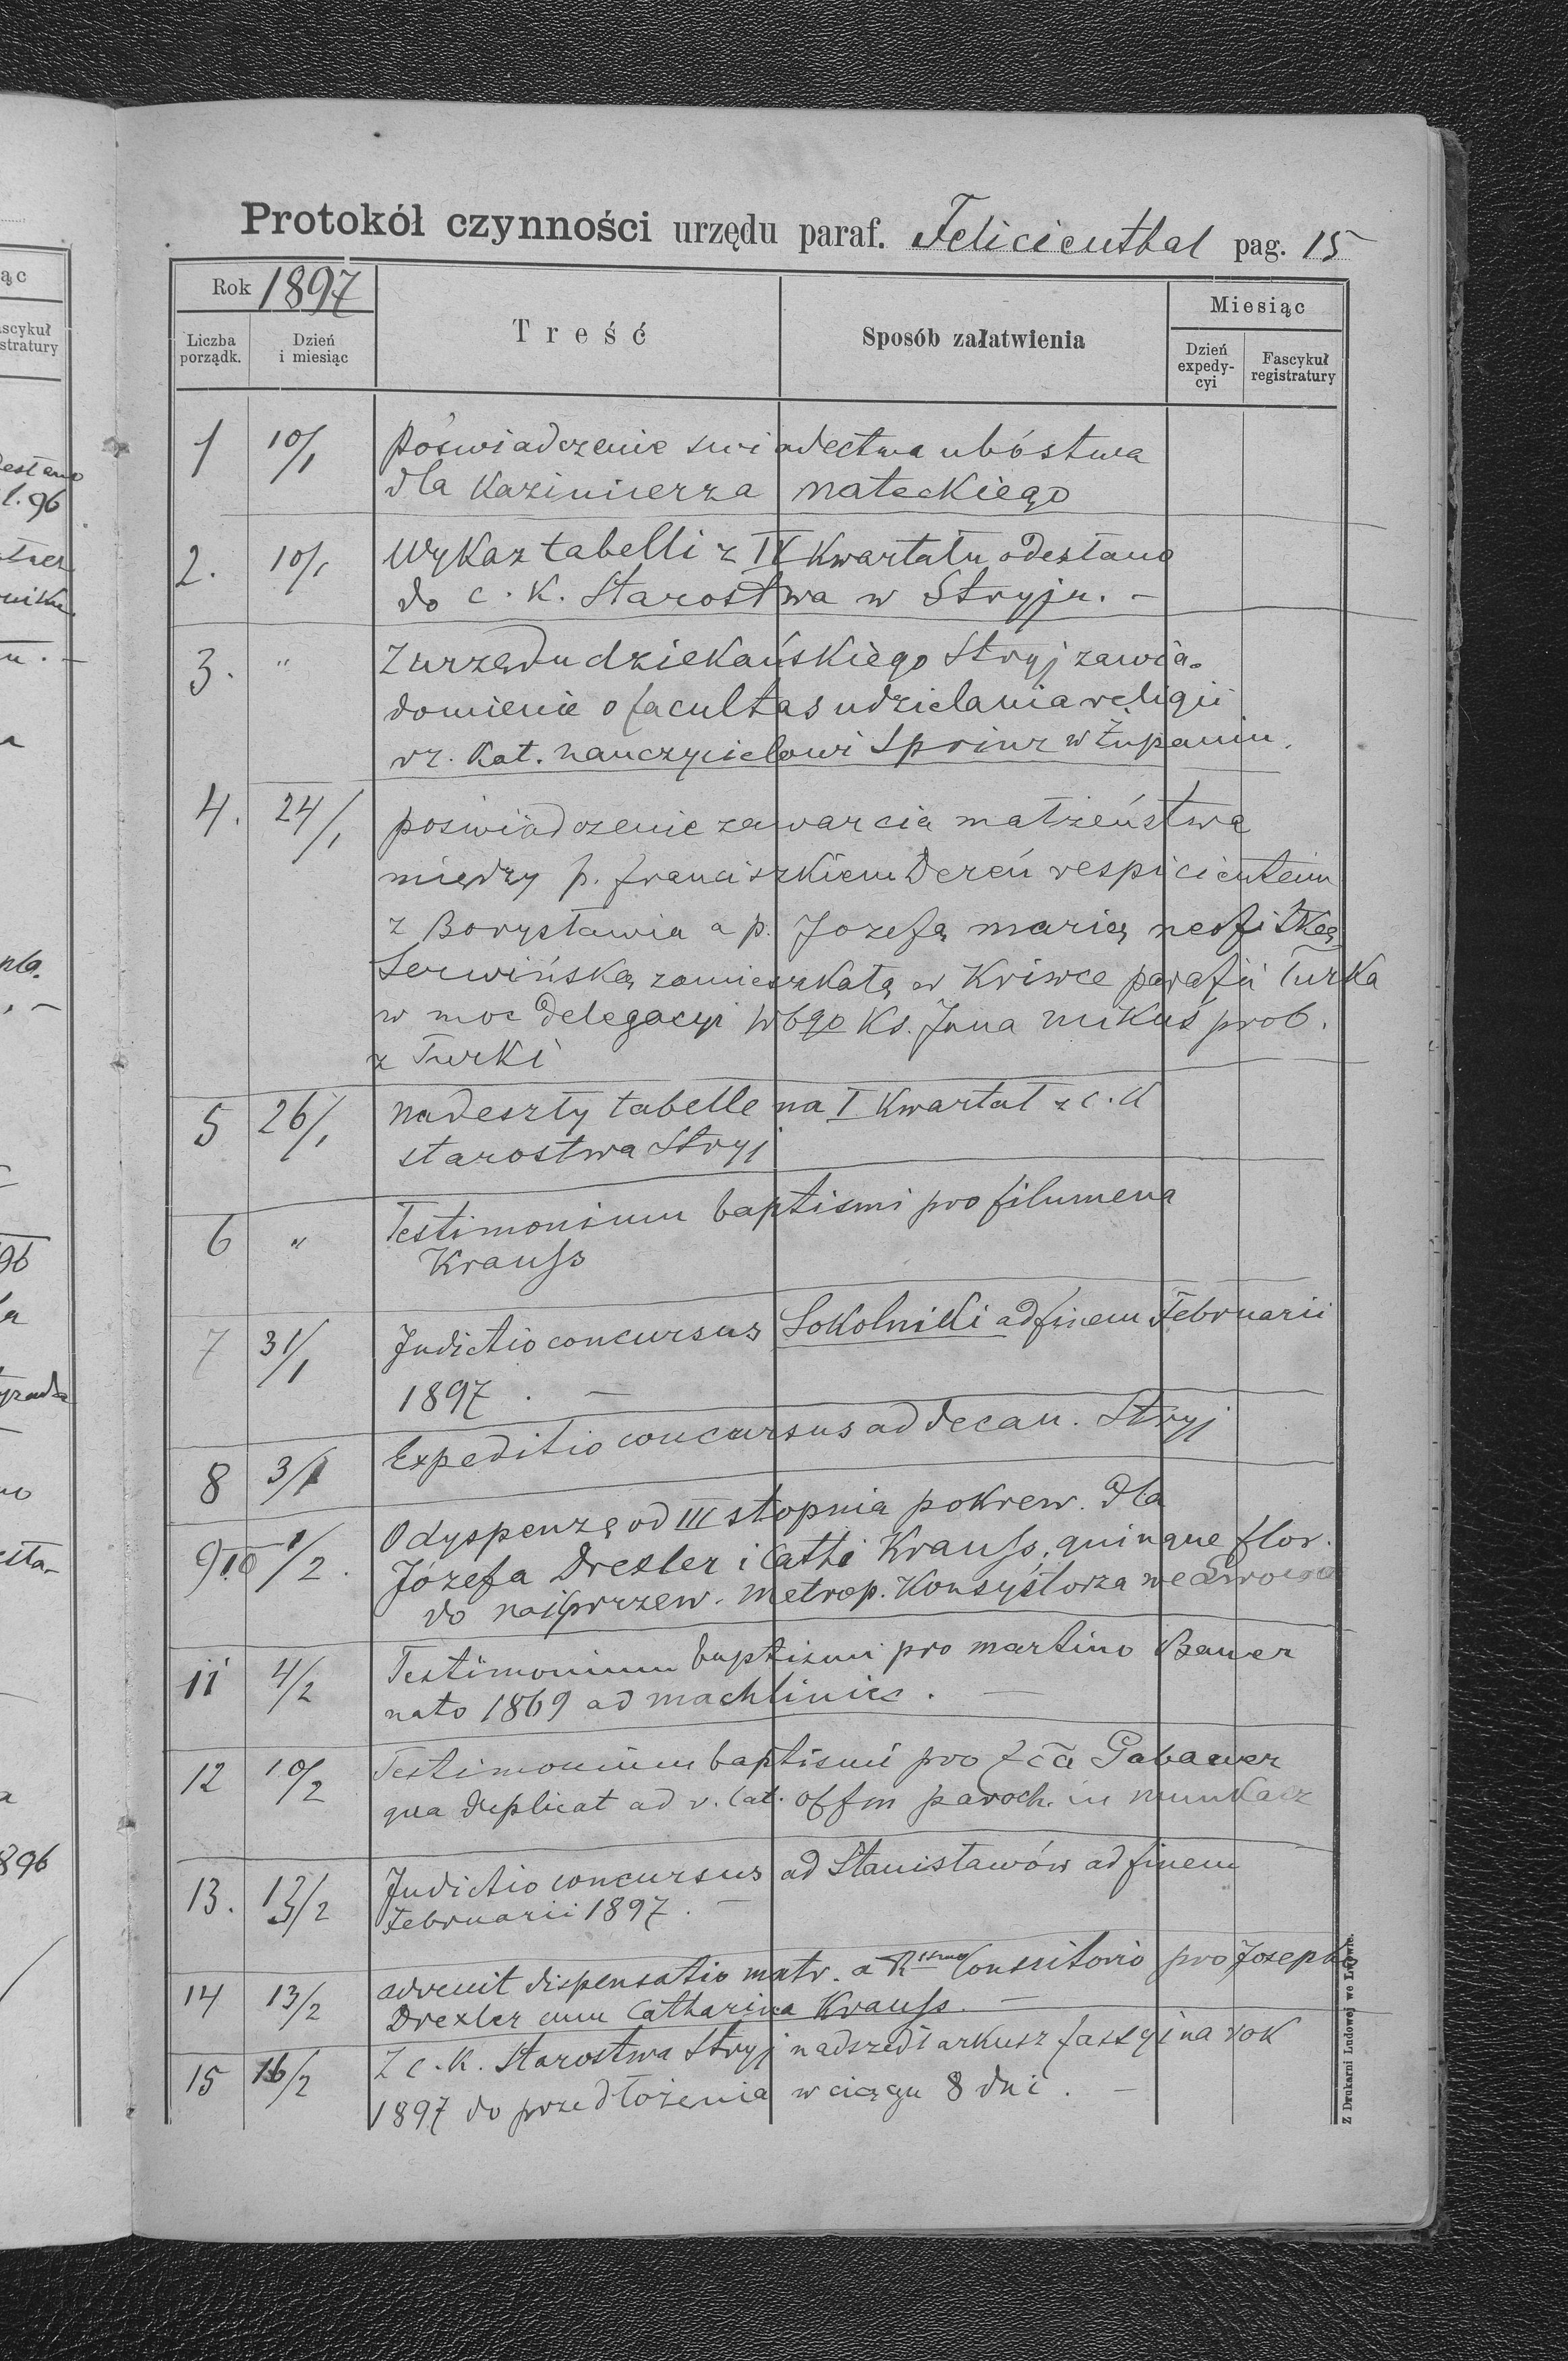 Protokół czynności urzędu paraf. Felicienthal pag. 15
Rok 1897
Liczba porządk.
Dzień i miesiąc
Treść
Sposób załatwienia
Miesiąc
Dzień expedy-cyi
Fascykuł registratury
1 10/1 Poświadczenie swiadectwa ubóstwa
dla Kazimierza Nateckiego
2. 10/1 Wykaz tabelli z IV Kwartału odesłano
do c. K. Starostwa w Stryju. –
3. " Z urzędu dziekańskiego Stryj zawia-
domienie o facultas udzielania religii
rz. Kat. nauczycielowi Sprinz w Żupaniu.
4. 24/1 poswiadczenie zawarcia małżeństwa
między p. Franciszkiem Dereń respicientem
z Borysławia a p. Jozefą Marią neofitką
Serwińską zamieszkałą w Kriwce parafii Turka
w moc delegacyi Wbgo Ks. Jana Mikuś prob.
z Turki
5 26/1 Nadeszły tabelle na I Kwartał z c. K
starostwa Stryj
6 " Testimonium baptismi pro Filumena
Krauss
7 31/1 Indictio concursus Sokolniki ad finem Februarii
1897 . –
8 3/1 Expeditio concursus ad decan. Stryj
9 10 1/2. O dyspenzę od III stopnia pokrew. dla
Józefa Drexler i Cathi Krauss, quinque flor.
do najprzew. Metrop. Konsystorza we Lwowie
11 4/2 Testimonium baptismi pro Martino Bauer
nato 1869 ad Machliniec . –
12 10/2 Testimonium baptismi pro Gabauer
qua duplicat ad r. lat. offm paroch. in Munkacz
13. 13/2 Indictio concursus ad Stanisławów ad finem
Februarii 1897 . –
14 13/2 advenit dispensatio matr. a Rssmo Consistorio pro Josepho
Drexler cum Catharina Krauss. –
15 16/2 Z c. K. Starostwa Stryj nadszedł arkusz fassyi na rok
1897 do przedłożenia w ciągu 8 dni . –
Z Drukarni Ludowej we Lwowie.